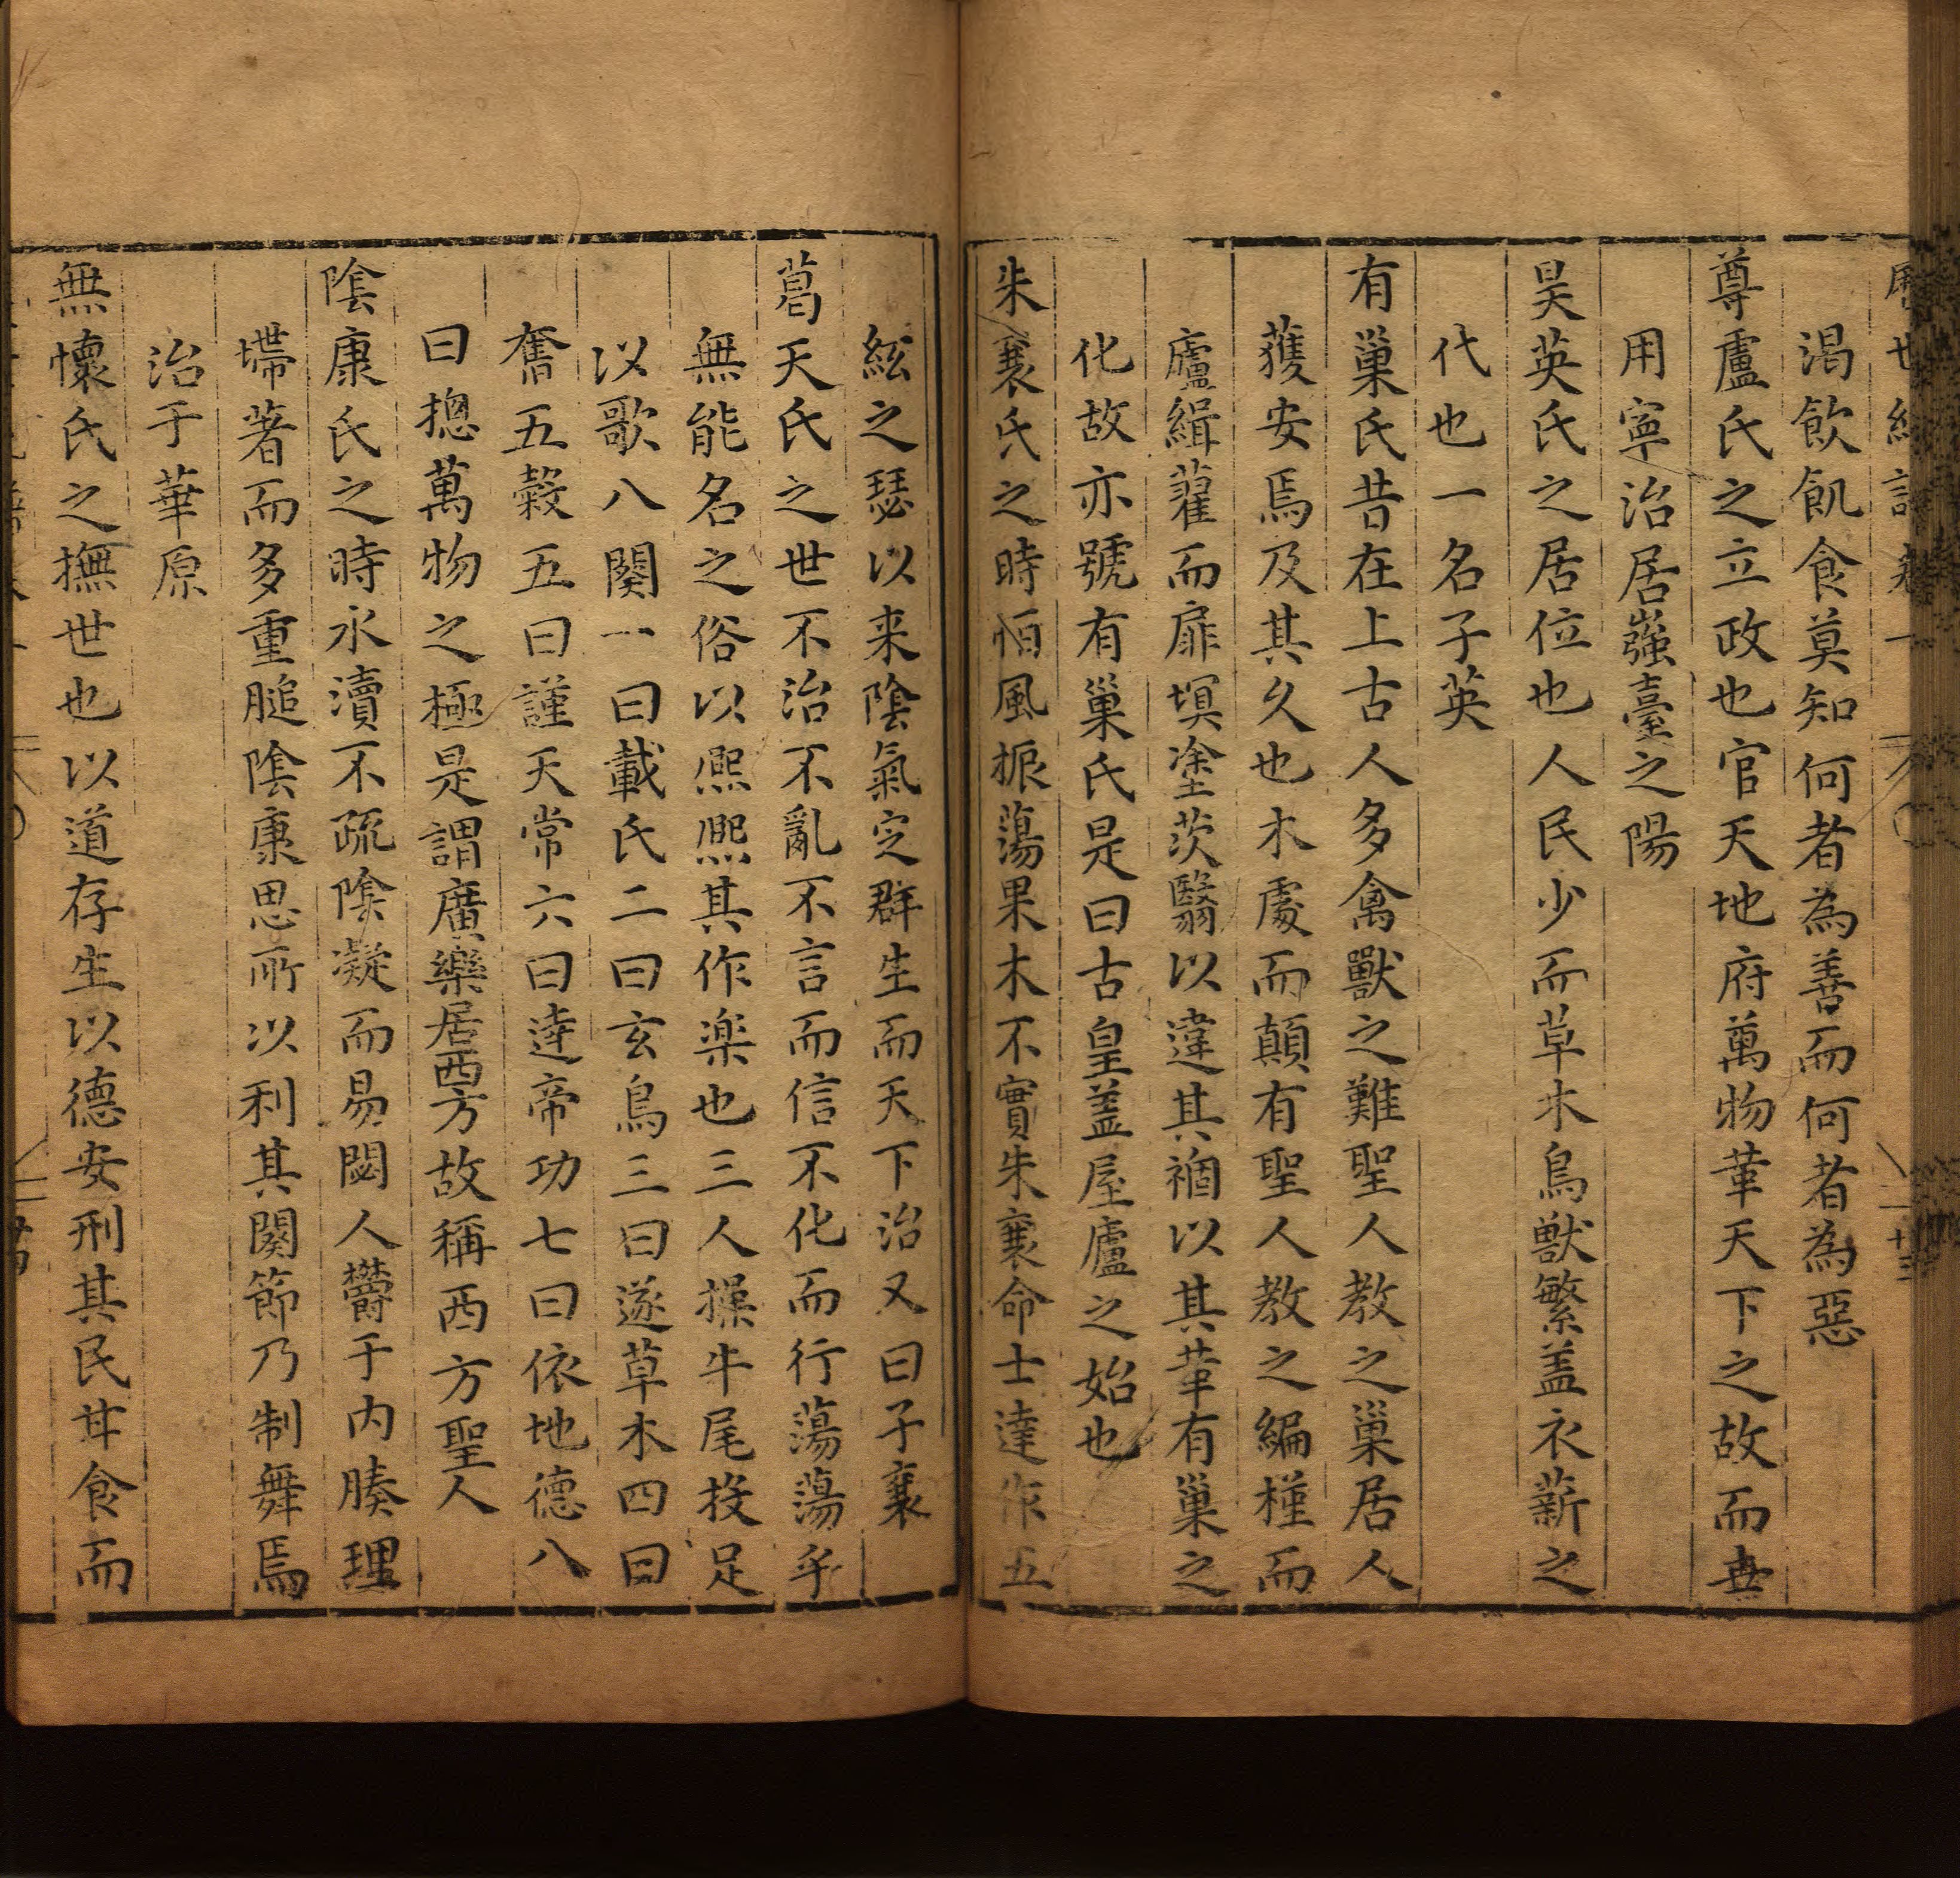 渴飲飢食莫知何者為善而何者為惡
尊盧氏之立政也官天地府萬物革天下之故而無
用寧治居強臺之陽
昊英氏之居位也人民少而草木鳥獸繁盖衣薪之
代也一名子英
有巢氏昔在上古人多禽獸之難聖人教之巢居人
獲安焉及其久也木處而顛有聖人教之編槿而
廬緝藋而扉塓塗茨翳以違其禍以其革有巢之
化故亦號有巢氏是曰古皇盖屋廬之始也
朱襄氏之時恒風振蕩果木不實朱襄命士達作五
絃之瑟以来陰氣定群生而天下治又曰子襄
葛天氏之世不治不亂不言而信不化而行蕩蕩乎
無能名之俗以熙熙其作楽也三人操牛尾投足
以歌八闋一曰載氏二曰玄鳥三曰遂草木四曰
奮五穀五曰謹天常六曰達帝功七曰依地德八
曰摠萬物之極是謂廣樂居西方故稱西方聖人
陰康氏之時水瀆不疏陰凝而易閟人鬱于內腠理
墆著而多重膇陰康思所以利其關節乃制舞焉
治于華原
無懷氏之撫世也以道存生以德安刑其民甘食而